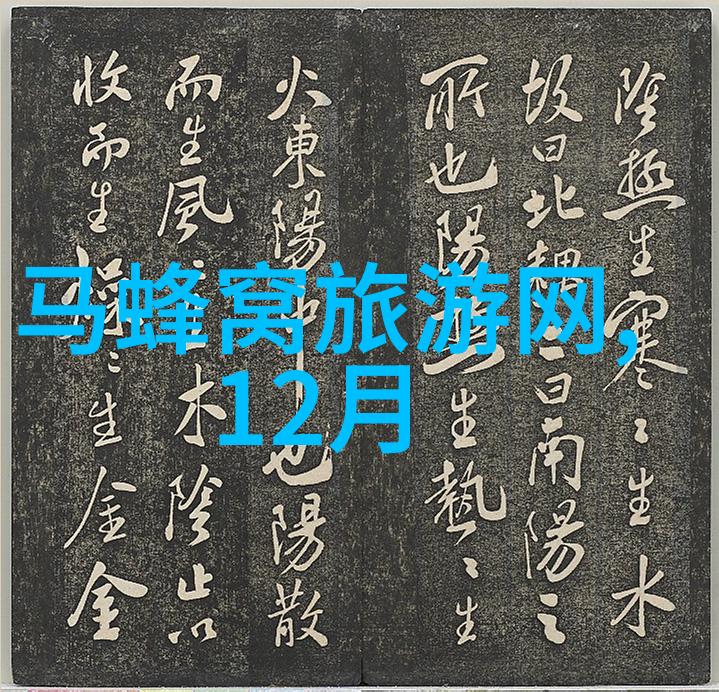 陰極生寒〻生水
故曰北耦曰南陽之
所也陽生熱〻生
火東陽中也陽散
而生風木陰止以
收而生〻生金金
马蜂窝旅游网,
12月